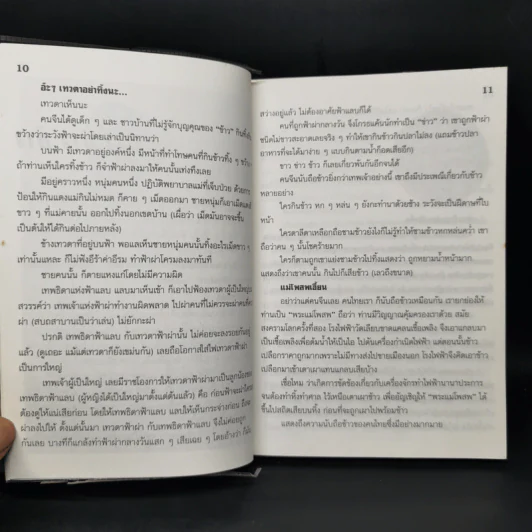 10
อ้ะๆ เทวดาอย่าทิ้งนะ...
เทวดาเห็นนะ
คนจีนได้ดูเด็ก ๆ และ ชาวบ้านที่ไม่รู้จักบุญคุณของ “ข้าว” กินทิ้ง
ขว้างว่าระวังฟ้าจะผ่าโดยเล่าเป็นนิทานว่า
บนฟ้า มีเทวดาอยู่องค์หนึ่ง มีหน้าที่ทำโทษคนที่กินข้าวทิ้ง ๆ
ถ้าท่านเห็นใครทิ้งข้าว ก็จำฟ้าผ่าลงมาให้คนนั้นเท่งทึงเลย
มีอยู่คราวหนึ่ง หนุ่มคนหนึ่ง ปฏิบัติพยาบาลแม่ที่เจ็บป่วย
ป้อนให้กินแดงแม่กินไม่หมด ก็คาย ๆ เม็ดออกมา ชายหนุ่มก็เอาเม็ด
ขาว ๆ ที่แม่คายนั้น ออกไปทิ้งนอกเขตบ้าน (เผื่อว่า เม็ดมันอาจจะขึ้น
เป็นต้นให้กินต่อไปภายหลัง)
ข้างเทวดาที่อยู่บนฟ้า พอแลเห็นชายหนุ่มคนนั้นทิ้งอะไรเม็ดขาว ๆ
เท่านั้นแหละ ก็ไม่ฟังอีร้าค่าอีรม ทำฟ้าผ่าโครมลงมาทันที
ชายคนนั้น ก็ตายแหงแก๋โดยไม่มีความผิด
เทพธิดาแห่งฟ้าแลบ แลบมาเห็นเข้า ก็เอาไปฟ้องเทวดาผู้เป็นใหญ่
สวรรค์ว่า เทพเจ้าแห่งฟ้าผ่าทำงานผิดพลาด ไปผ่าคนที่ไม่ควรจะผ่า
(สบถสาบานเป็นว่าเล่น) ไม่ยักกะผ่า
ปรกติ เทพธิดาฟ้าแลบ กับเทวดาฟ้าผ่านั้น ไม่ค่อยจะลงรอยกัน
แล้ว (ดูเถอะ แม้แต่เทวดาก็ยังเขม่นกัน) เลยถือโอกาสใส่ไฟเทวดาฟ้าผ่า
เป็นการใหญ่
เทพเจ้าผู้เป็นใหญ่ เลยมีราชโองการให้เทวดาฟ้าผ่ามาเป็นลูกน้อง
เทพธิดาฟ้าแลบ (ผู้หญิงได้เป็นใหญ่มาตั้งแต่ต้นแล้ว) คือ ก่อนฟ้าจะผ่า
ต้องดูให้แน่เสียก่อน โดยให้เทพธิดาฟ้าแลบ แลบให้เห็นกระจ่างก่อน
ผ่าลงไปให้ ตั้งแต่นั้นมา เทวดาฟ้าผ่า กับเทพธิดาฟ้าแลบ จึงไม่ค่อยถูก
กันเลย บางทีก็แกล้งทำฟ้าผ่ากลางวันแสก ๆ เสียเฉย ๆ โดยอ้างว่า
11
สว่างอยู่แล้ว ไม่ต้องอาศัยฟ้าแลบก็ได้
คนที่ถูกฟ้าผ่ากลางวัน จึงโกรธแค้นนักทำเป็น “ข่าว” ว่า เขาถูกฟ้าผ่า
ชนิดไม่ขาวสะอาดเลยจริง ๆ ทำให้เขากินข้าวกินปลาไม่ลง (แถมข้าวปลา
อาหารที่จะได้มาง่าย ๆ แบบกินตามน้ำก็อดเสียอีก)
ขาว ข่าว ข้าว ก็เลยเกี่ยวพันกันอีกจนได้
คนจีนนับถือข้าวยิ่งกว่าเทพเจ้าอย่างนี้ เขาถึงมีประเพณีเกี่ยวกับข้าว
หลายอย่าง
ใครกินข้าว หก ๆ หล่น ๆ ยังกะทำนาด้วยข้าง ระวังจะเป็นฝีดาษที่ใบ
หน้า
ใครตาลีตาเหลือกถือชามข้าวยังไงก็ไม่รู้ทำให้ชามข้าวหกหล่นคว่ำ เขา
ถือว่าคน ๆ นั้นโชคร้ายมาก
ใครก็ตามถูกสาแช่งชามข้าวก็ยิ่งแสดงว่า ถูกหยามน้ำหน้ามาก
แสดงว่าเขาคนนั้น กินไปก็เสียข้าว (เลวถึงขนาด)
แม่โพสพเฮี้ยน
อย่าว่าแต่คนจีนเลย คนไทยเรา ก็นับถือข้าวเหมือนกัน เรายกย่องให้
ท่านเป็น “พระแม่โพสพ” ถือว่ามีวิญญาณคุ้มครองเราด้วย สมัย
สงครามโลกครั้งที่สอง โรงไฟฟ้าวัดเลียบขาดแคลนเชื้อเพลิง จึงเอาแกลบมา
เป็นเชื้อเพลิงเพื่อต้มน้ำให้เป็นไอ ไปดันเครื่องกำเนิดไฟฟ้า แต่ตอนนั้นข้าว
เปลือกราคาถูกมากเพราะไม่มีทางส่งไปขายเมืองนอก โรงไฟฟ้าจึงคิดเอาข้าว
เปลือกมาเข้าเตาเผาแทนแกลบเสียบ้าง
เชื่อไหม ว่าเกิดการขัดข้องเกี่ยวกับเครื่องจักรทำไฟฟ้านานาประการ
จนต้องทำพิธีทำศาล ไว้เหนือเตาเผาข้าว เพื่ออัญเชิญให้ “พระแม่โพสพ” ได้
ขึ้นไปสถิตเสียบนหิ้ง ก่อนที่จะถูกเผาไปพร้อมข้าว
แสดงถึงความนับถือข้าวของคนไทยซึ่งมีอย่างมากมาย